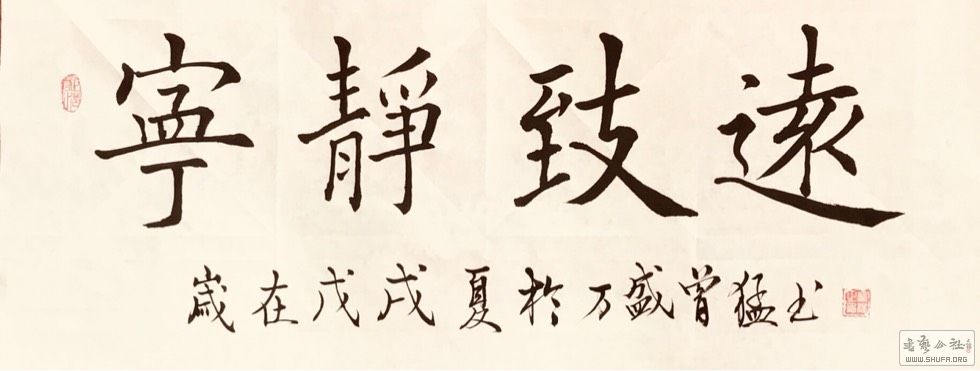 寧靜致遠
歲在戊戌夏於万盛曾猛书
WWW.SHUFA.ORG